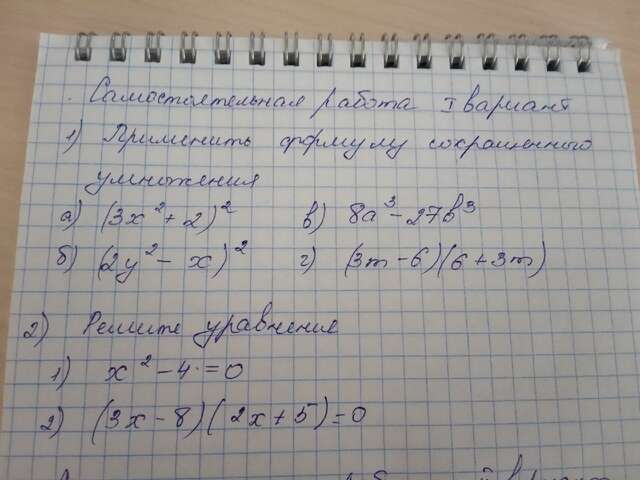 Самостоятельная работа I вариант
1) Применить формулу сокращенного
умножения
а) (3x²+2)² в) 8a³-27b³
б) (2y²-x)² г) (3m-6)(6+3m)
2) Решите уравнение
1) x²-4=0
2) (3x-8)(2x+5)=0